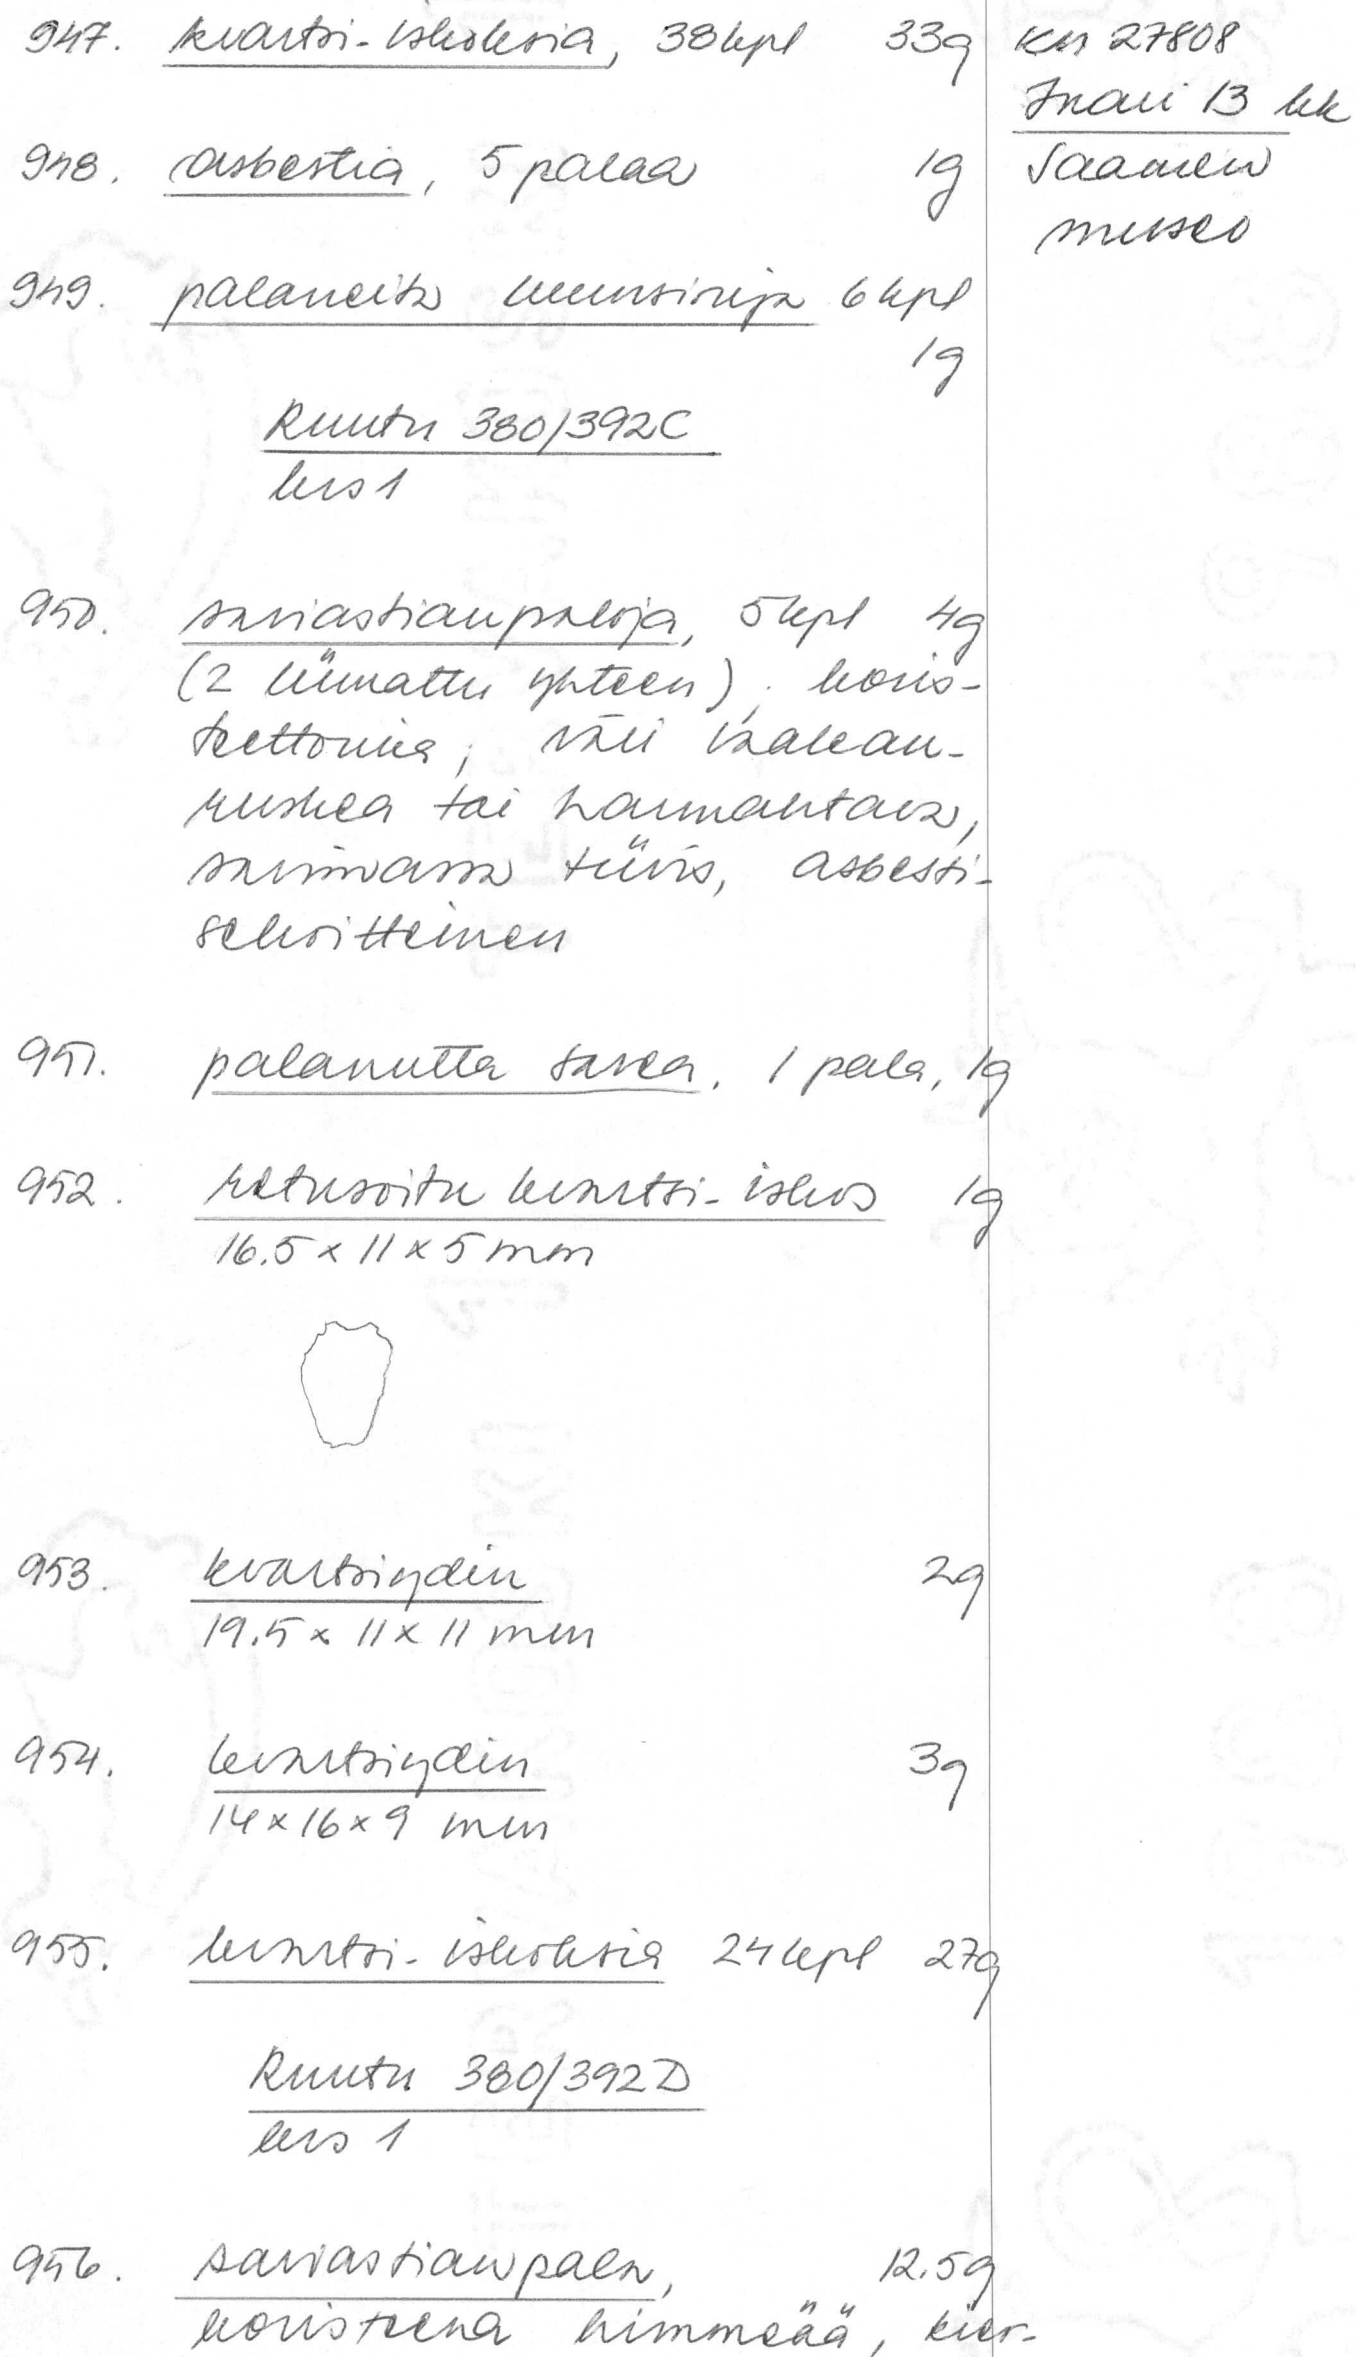 947. kvartsi-iskoksia, 38 kpl 33g
KM 27808
Inari 13 kk
Saamen
museo
948. asbestia, 5 palaa 1g
949. palaneita luunsiruja 6 kpl
1g
Ruutu 380/392C
krs 1
950. saviastianpaloja, 5 kpl 4g
(2 liimattu yhteen), koris-
teettomia, väri vaalean-
ruskea tai harmahtava,
savimassa tiivis, asbesti-
sekoitteinen
951. palanutta savea, 1 pala, 1g
952. retusoitu kvartsi-iskos 1g
16.5 x 11 x 5 mm
953. kvartsiydin 2g
19.5 x 11 x 11 mm
954. kvartsiydin 3g
14 x 16 x 9 mm
955. kvartsi-iskoksia 24 kpl 27g
Ruutu 380/392D
krs 1
956. saviastianpala, 12.5g
koristeena himmeää, kier-